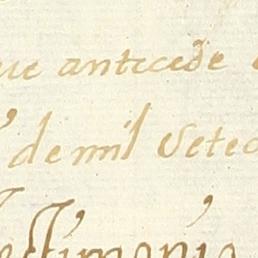 que antecede
de mil Setec
testimonio